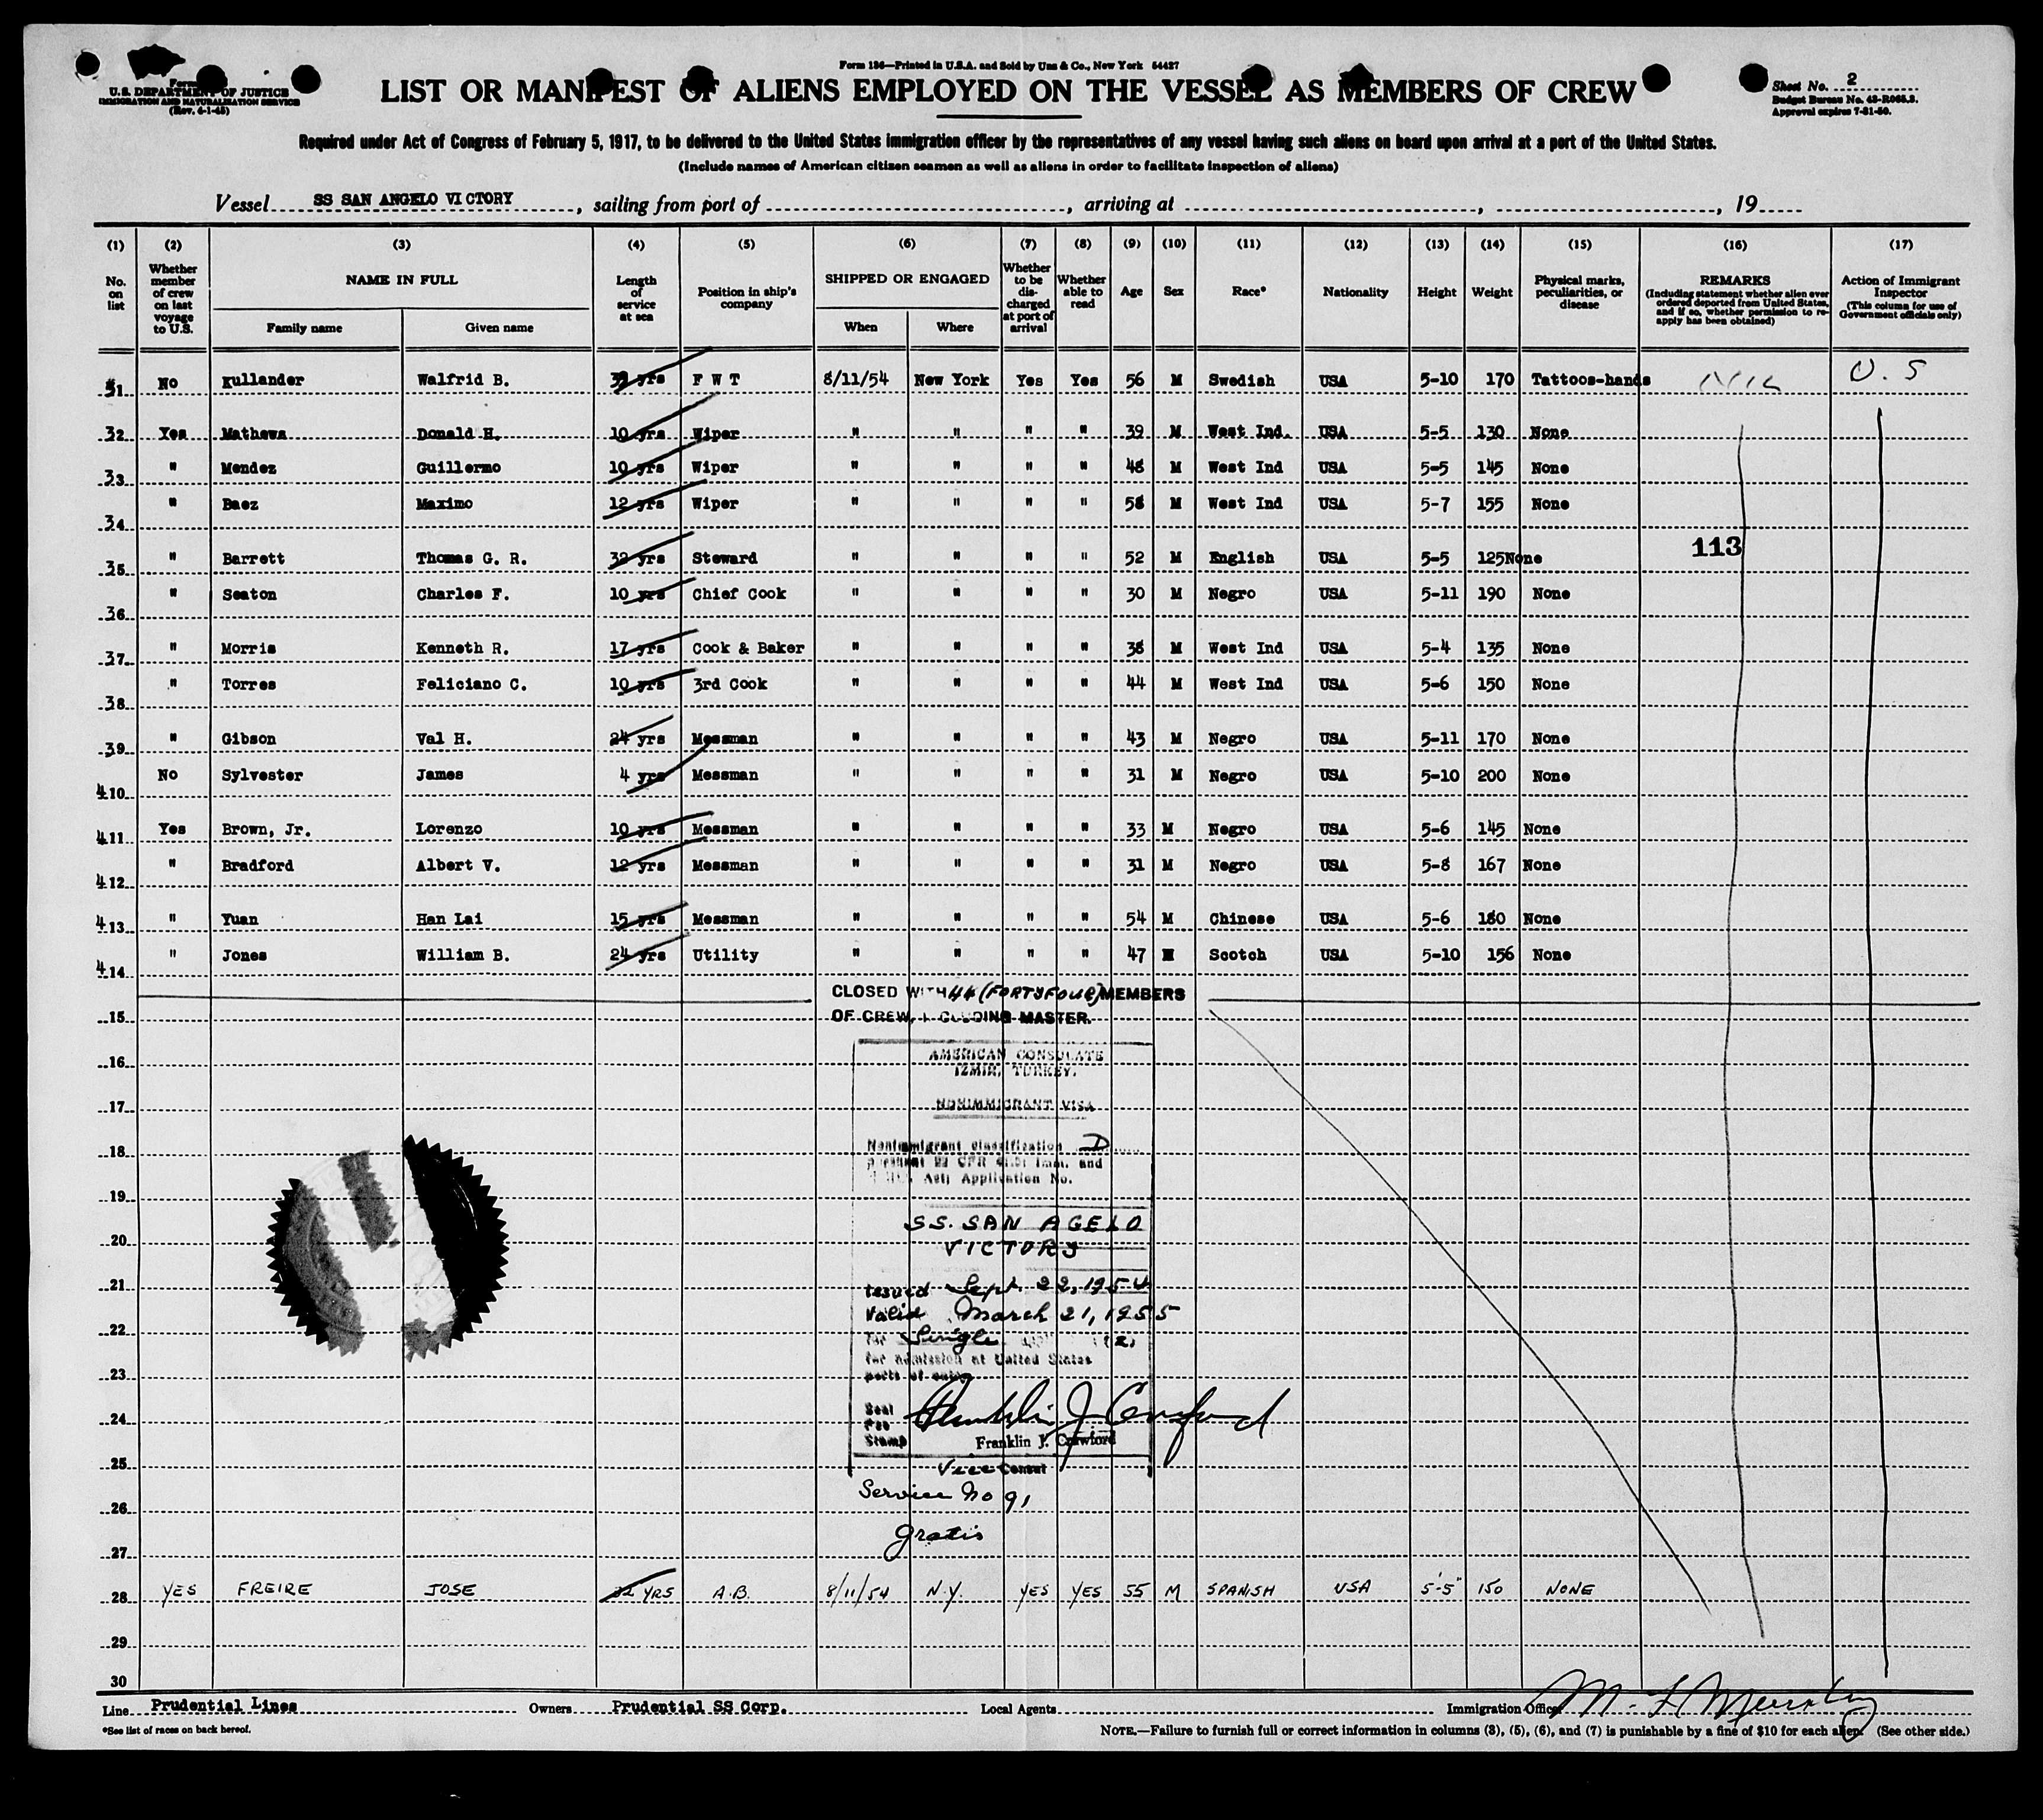 Form 136—Printed in U.S.A. and Sold by Unz & Co., New York 54427
U. S. DEPARTMENT OF JUSTICE
IMMIGRATION AND NATURALIZATION SERVICE
(Rev. 4-1-45)
LIST OR MANIFEST OF ALIENS EMPLOYED ON THE VESSEL AS MEMBERS OF CREW
Sheet No. 2
Budget Bureau No. 43-R065.3.
Approval expires 7-31-50.
Required under Act of Congress of February 5, 1917, to be delivered to the United States immigration officer by the representatives of any vessel having such aliens on board upon arrival at a port of the United States.
(Include names of American citizen seamen as well as aliens in order to facilitate inspection of aliens)
Vessel SS SAN ANGELO VICTORY, sailing from port of , arriving at , , 19
(1) (2) (3) (4) (5) (6) (7) (8) (9) (10) (11) (12) (13) (14) (15) (16) (17)
No. on list
Whether member of crew on last voyage to U.S.
NAME IN FULL
Family name
Given name
Length of service at sea
Position in ship's company
SHIPPED OR ENGAGED
When
Where
Whether to be discharged at port of arrival
Whether able to read
Age
Sex
Race*
Nationality
Height
Weight
Physical marks, peculiarities, or disease
REMARKS
(Including statement whether alien ever ordered deported from United States, and if so, whether permission to reapply has been obtained)
Action of Immigrant Inspector
(This column for use of Government officials only)
31 No Kullander Walfrid B. yrs F W T 8/11/54 New York Yes Yes 56 M Swedish USA 5-10 170 Tattoos-hands U. S
32 Yes Mathews Donald H. 10 yrs Wiper " " " " 39 M West Ind. USA 5-5 130 None
33 " Mendez Guillermo 10 yrs Wiper " " " " 48 M West Ind USA 5-5 145 None
34 " Baez Maximo 12 yrs Wiper " " " " 58 M West Ind USA 5-7 155 None
113
35 " Barrett Thomas G. R. 32 yrs Steward " " " " 52 M English USA 5-5 125 None
36 " Seaton Charles F. 10 yrs Chief Cook " " " " 30 M Negro USA 5-11 190 None
37 " Morris Kenneth R. 17 yrs Cook & Baker " " " " 38 M West Ind USA 5-4 135 None
38 " Torres Feliciano C. 10 yrs 3rd Cook " " " " 44 M West Ind USA 5-6 150 None
39 " Gibson Val H. 24 yrs Messman " " " " 43 M Negro USA 5-11 170 None
410 No Sylvester James 4 yrs Messman " " " " 31 M Negro USA 5-10 200 None
411 Yes Brown, Jr. Lorenzo 10 yrs Messman " " " " 33 M Negro USA 5-6 145 None
412 " Bradford Albert V. 12 yrs Messman " " " " 31 M Negro USA 5-8 167 None
413 " Yuan Han Lai 15 yrs Messman " " " " 54 M Chinese USA 5-6 180 None
414 " Jones William B. 24 yrs Utility " " " " 47 M Scotch USA 5-10 156 None
CLOSED WITH 44 (FORTYFOUR) MEMBERS
15 OF CREW, INCLUDING MASTER.
AMERICAN CONSULATE
16 IZMIR, TURKEY.
17 NONIMMIGRANT VISA
Nonimmigrant classification D
18 22 CFR Imm. and
19 Act; Application No.
SS. SAN AGELO
20 VICTORY
21 Issued Sept. 22, 1954
Valid March 21, 1955
22 for Single
for admission at United States
23 ports of entry
Seal
24 Fee
Stamp
Franklin J. Crawford
25 Vice Consul
Service No 91
26
gratis
27
28 YES FREIRE JOSE YRS A.B. 8/11/54 N.Y. YES YES 55 M SPANISH USA 5'-5" 150 NONE
29
30
Line Prudential Lines Owners Prudential SS Corp. Local Agents Immigration Officer
*See list of races on back hereof.
NOTE.—Failure to furnish full or correct information in columns (3), (5), (6), and (7) is punishable by a fine of $10 for each alien. (See other side.)